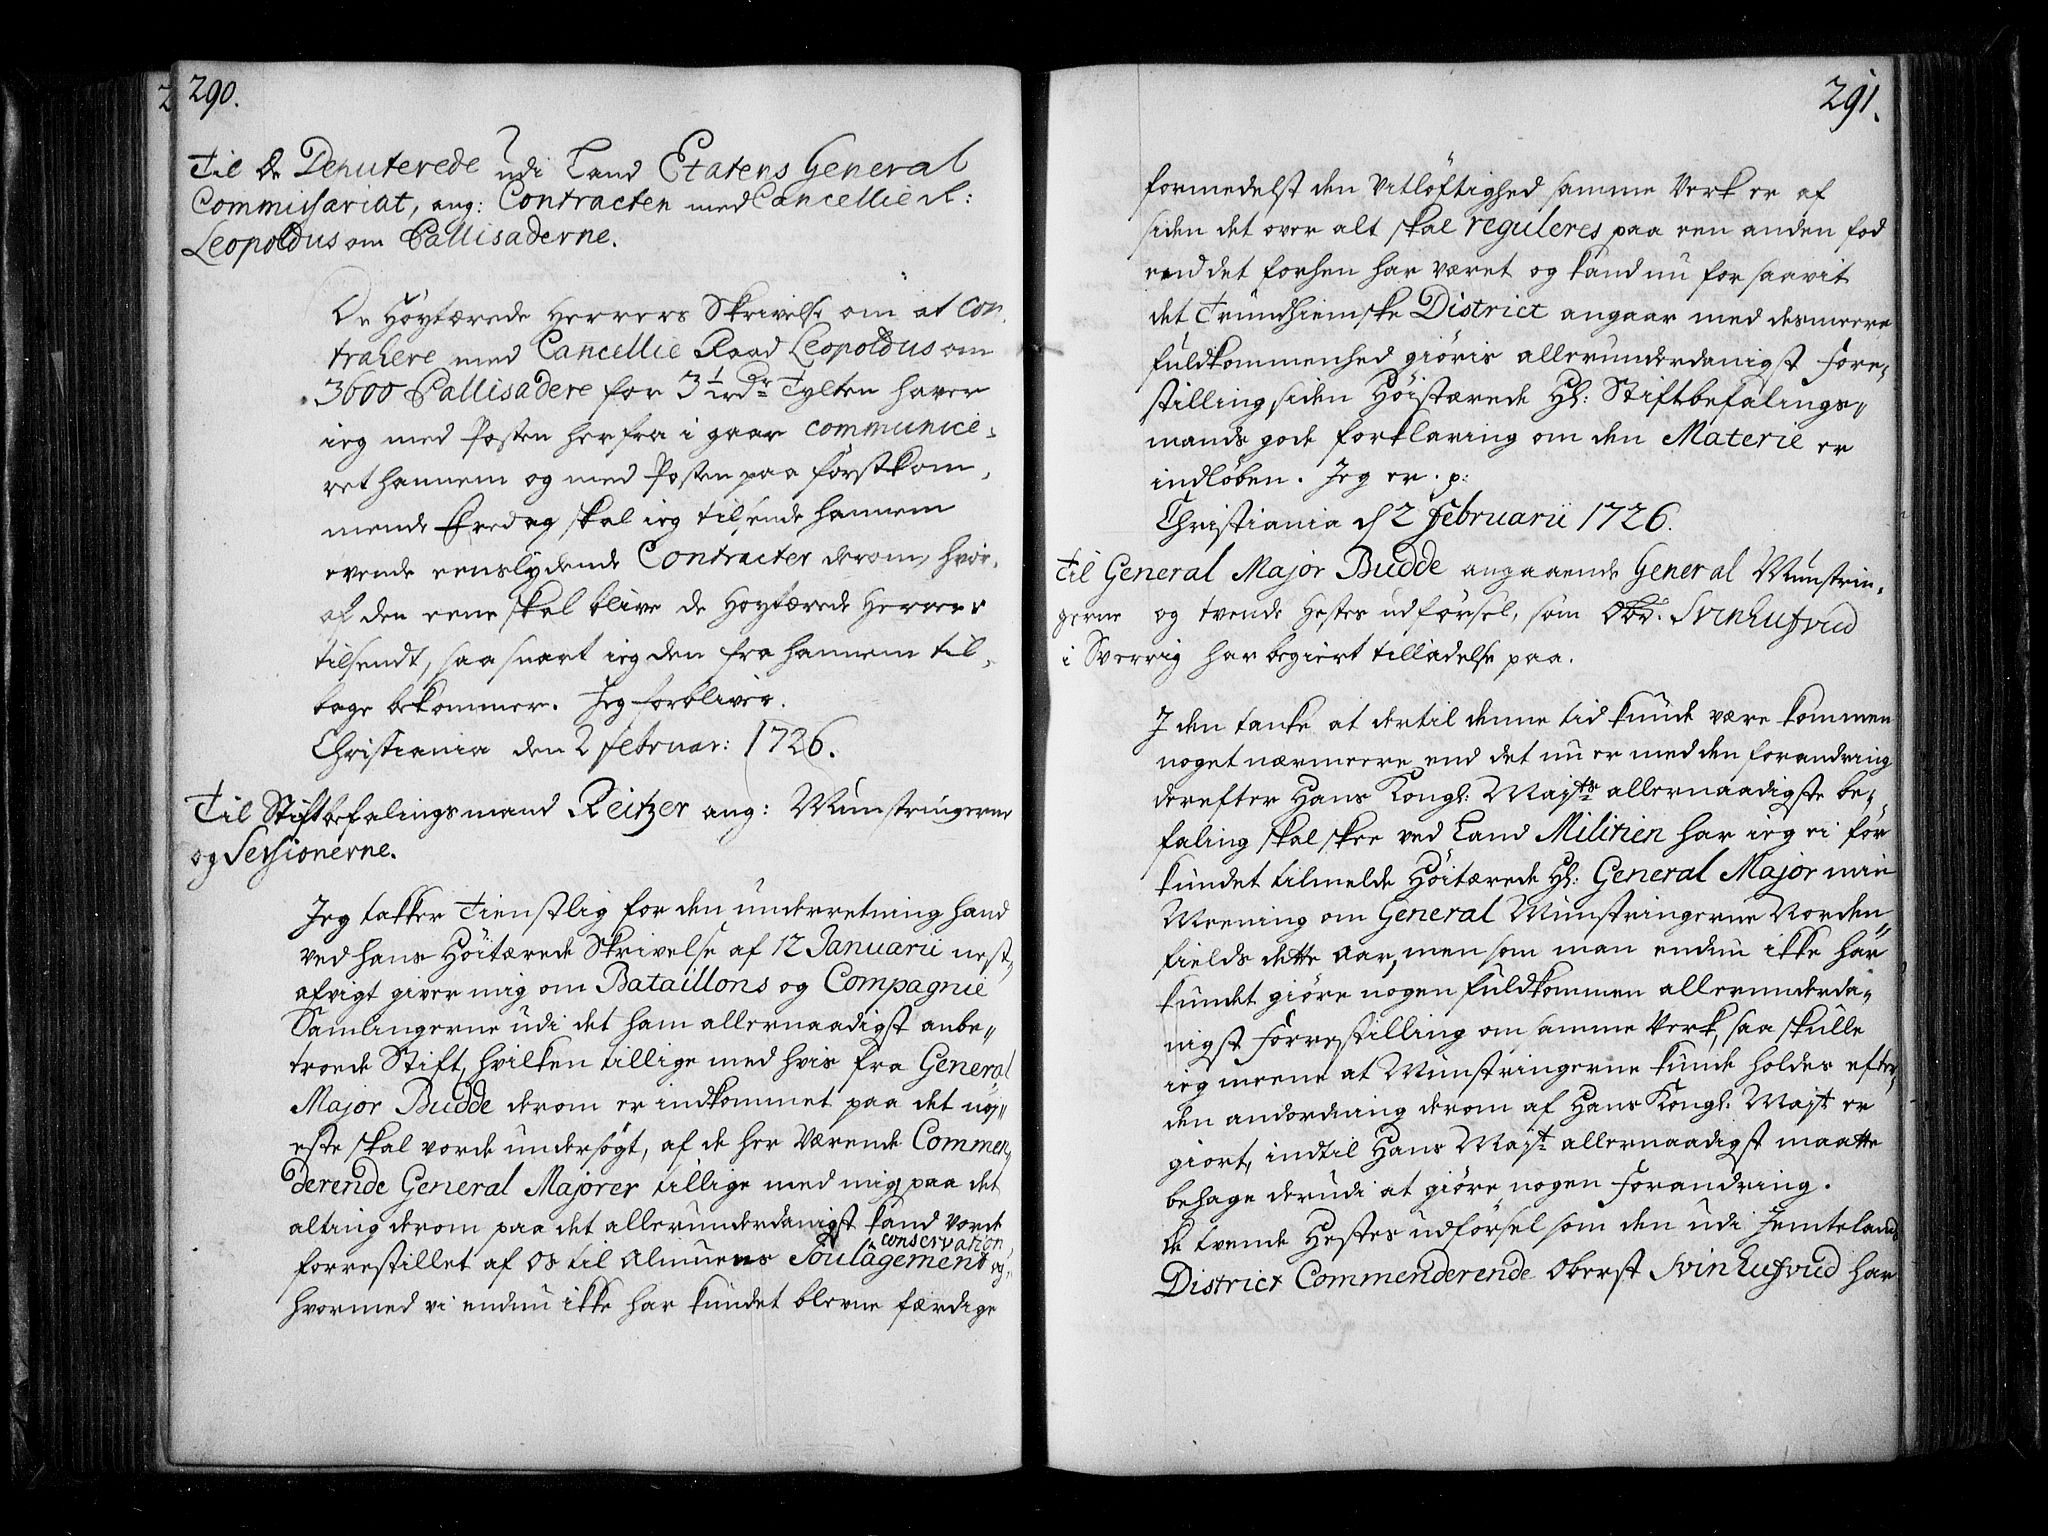 290.
Til De Deputerede udi Land Etatens General
Commissariat, ang: Contracten med Cancellie R:
Leopoldus om Pallisaderne.
De Höytærede Herrers Skrivelse om at Con-
trahere med Cancellie Raad Leopoldus om
3600 Pallisadere for 3½ rdr Tylten haver
ieg med Posten herfra i gaar communice-
ret hannem og med Posten paa förstkom-
mende Fredag skal ieg tilsende hannem
tvende eenslydende Contracter derom, hvor-
af den eene skal blive de Höytærede Herrer
tilsendt, saa snart ieg den fra hannem til-
bage bekommer. Jeg forbliver.
Christiania den 2 Februar: 1726.
Til Stiftbefalingsmand Reitzer ang: Munstringerne
og Sessionerne.
Jeg takker tienstlig for den underretning hand
ved hans Höitærede Skrivelse af 12 Januarii nest-
afvigt giver mig om Bataillons og Compagnie
Samlingerne udi det ham allernaadigst anbe-
troede Stift, hvilken tillige med hvis fra General
Major Budde derom er indkommet paa det nöy-
este skal vorde undersögt, af de her Værende Commen-
derende General Majorer tillige med mig, paa det
alting derom paa det allerunderdanigst kand vorde
forrestillet af os til Almuens Soulagement og
conservation,
hvormed vi endnu ikke har kundet blevne færdige
291.
formedelst den Vitlöftighed samme Verk er af
siden det over alt skal reguleres paa een anden fod
end det forhen har været og kand nu for saavit
det Trundhiemske District angaar med desmeere
fuldkommenhed giöris allerunderdanigst Fore-
stilling siden Höistærede Hl: Stiftbefalings-
mands gode forklaring om den Materie er
indlöben. Jeg er. p:
Christiania d 2 Februarii 1726.
Til General Major Budde angaaende General Munstrin-
gerne og tvende Hestes udförsel, som Obr. Svinhufvud
i Sverrig har begiert tilladelse paa.
I den tanke at dertil denne tid kunde være kommen
noget nærmeere end det nu er med den forandring
derefter Hans Kongl: Mayts allernaadigste be-
faling skal skee ved Land Militien har ieg ei för
kundet tilmelde Höitærede Hl: General Major min
Meening om General Munstringerne Norden-
fields dette Aar, men som man endnu ikke har
kundet giöre nogen fuldkommen allerunderda-
nigst Forrestilling om samme Verk, saa skulle
ieg meene at Munstringerne kunde holdes efter
den andordning derom af Hans Kongl: Mayt er
giort, indtil Hans Mayt allernaadigst maatte
behage derudi at giöre nogen Forandring.
De tvende Hestes udförsel som den udi Jemtelands
District Commenderende Oberst Svinhufvud har